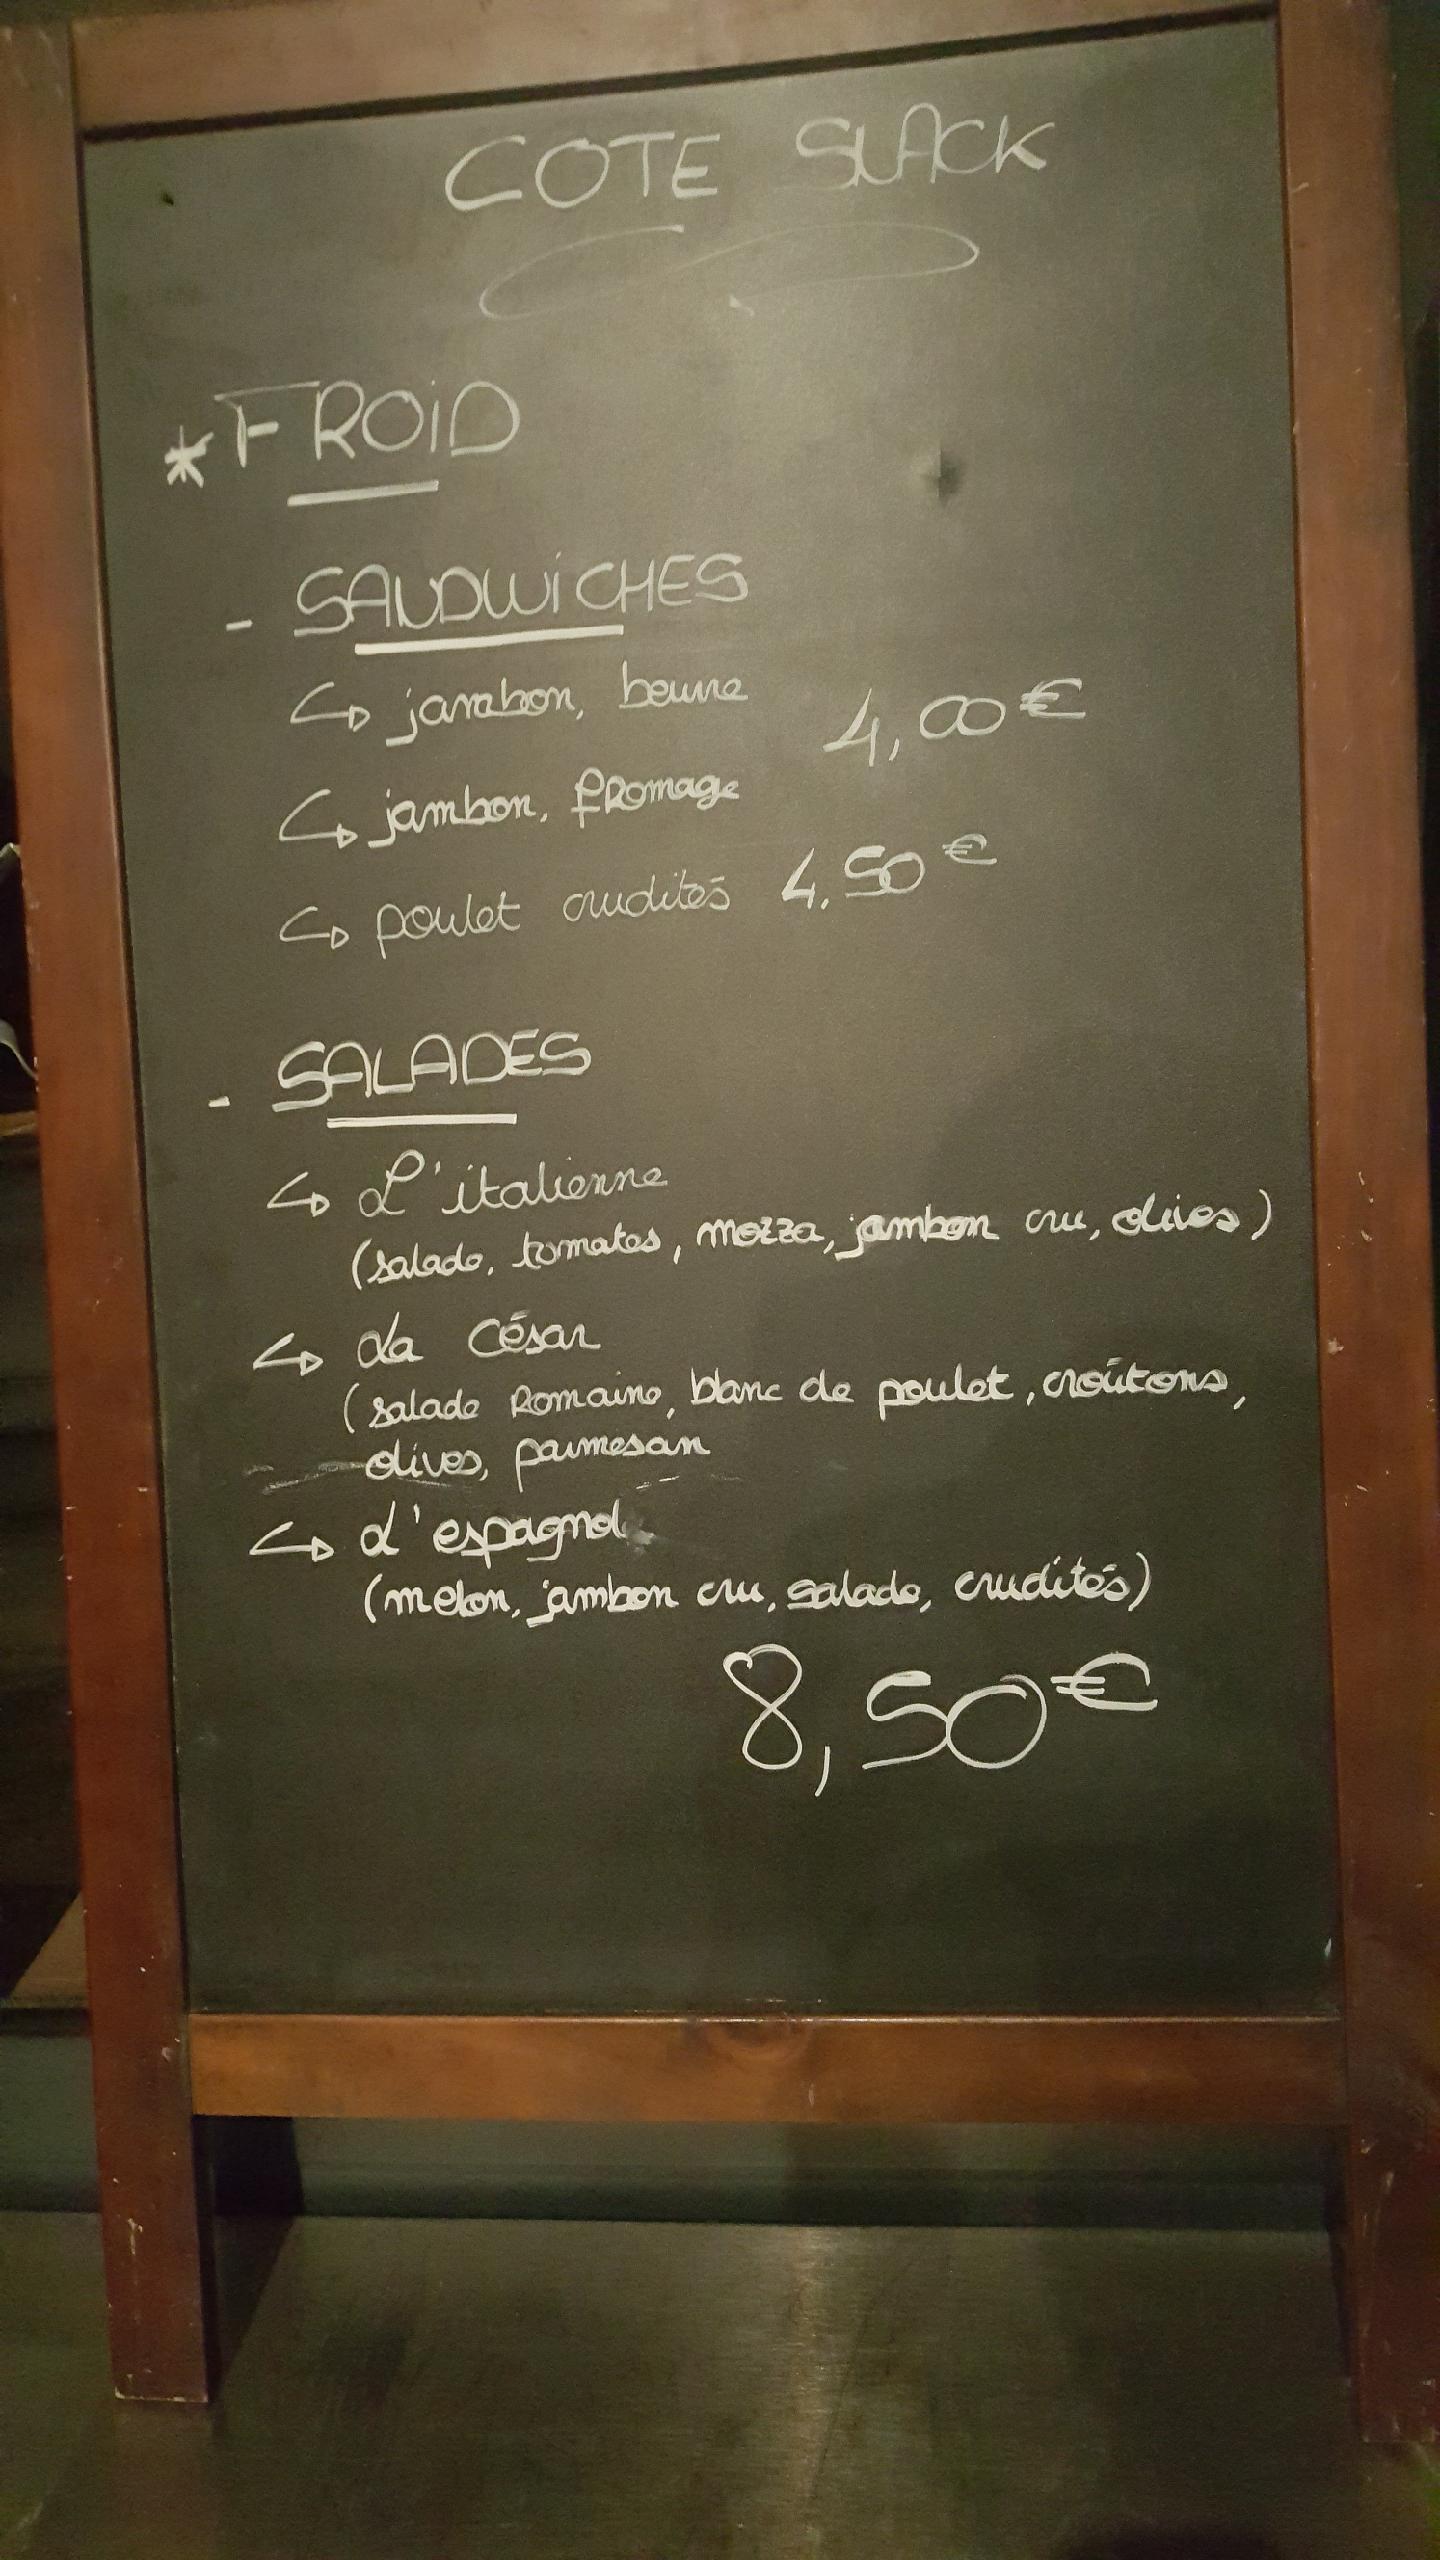 COTE SLACK
* FROID
- SANDWICHES
↳ jambon, beurre
4,00 €
↳ jambon, fromage
↳ poulet crudités 4,50 €
- SALADES
↳ L'italienne
(salade, tomates, mozza, jambon cru, olives)
↳ La César
(salade Romaine, blanc de poulet, croûtons,
olives, parmesan
↳ L'espagnol
(melon, jambon cru, salade, crudités)
8,50 €